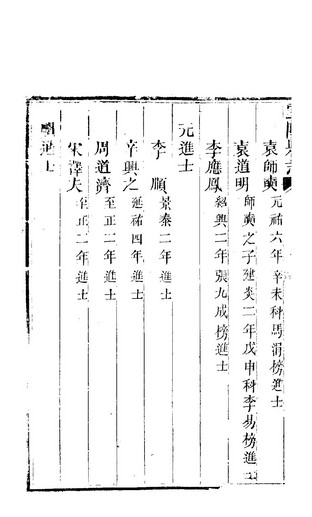 袁師奭元祐六年辛未科馬涓榜進士
袁道明師奭之子建炎二年戊申科李易榜進士
李應鳳紹興二年張九成榜進士
元進士
李順景泰二年進士
辛興之延祐四年進士
周道濟至正二年進士
宋譯夫至正二年進士
明進士